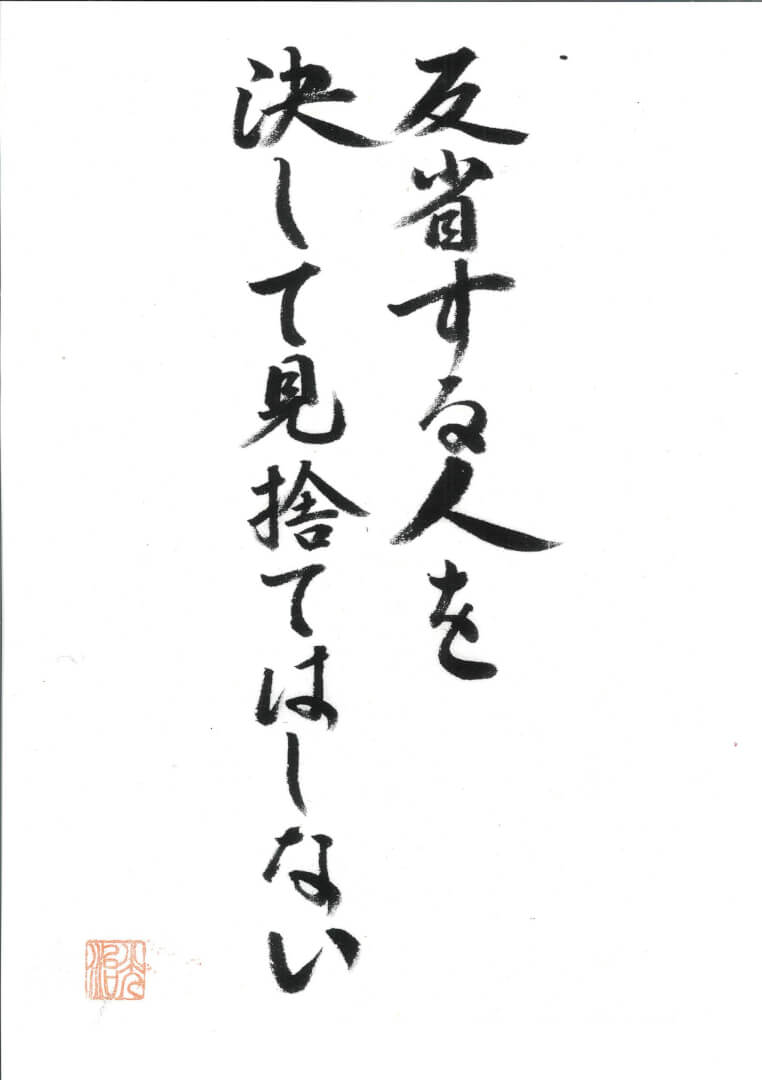 反省する人を
決して見捨てはしない